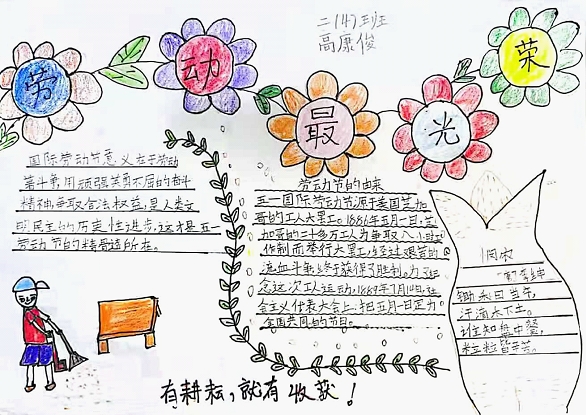 二(4)班
高康俊
劳动最光荣
国际劳动节意义在于劳动
者斗争,用顽强英勇不屈的奋斗
精神,争取合法权益,是人类文
明民主的历史性进步,这才是五一
劳动节的精髓所在。
劳动节的由来
五一国际劳动节源于美国芝加
哥的工人大罢工。1886年五月一日,芝
加哥的二十多万工人为争取八小时工
作制而举行大罢工,经过艰苦的
流血斗争,终于获得了胜利。为了纪
念这次工人运动,1889年7月
会主义代表大会上,把五月一日定为
全国共同的节日。
悯农
李绅
锄禾日当午,
汗滴禾下土。
谁知盘中餐,
粒粒皆辛苦。
有耕耘,就有收获!